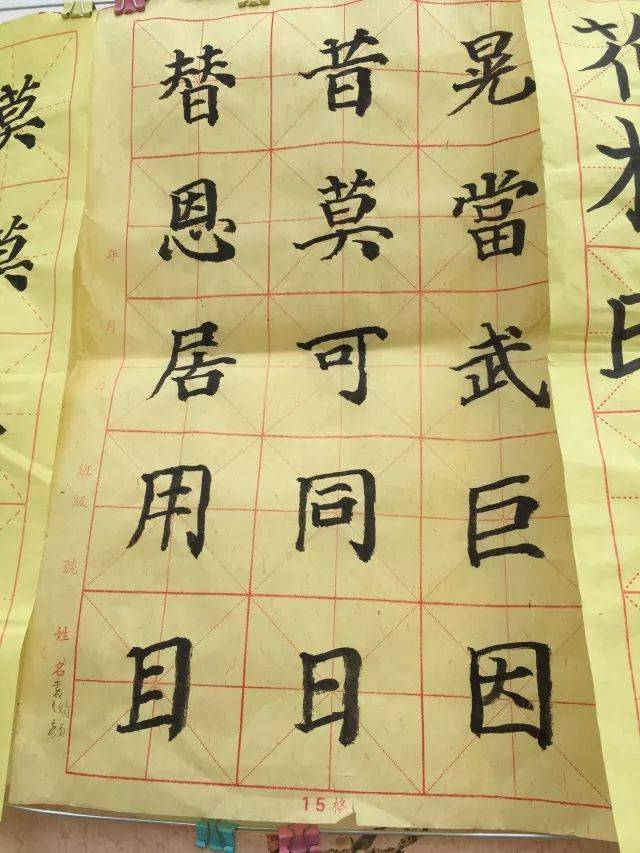 花木
晃當武巨因
昔莫可同日
替恩居用目
年月日
班級 號
姓名
15格
莫莫